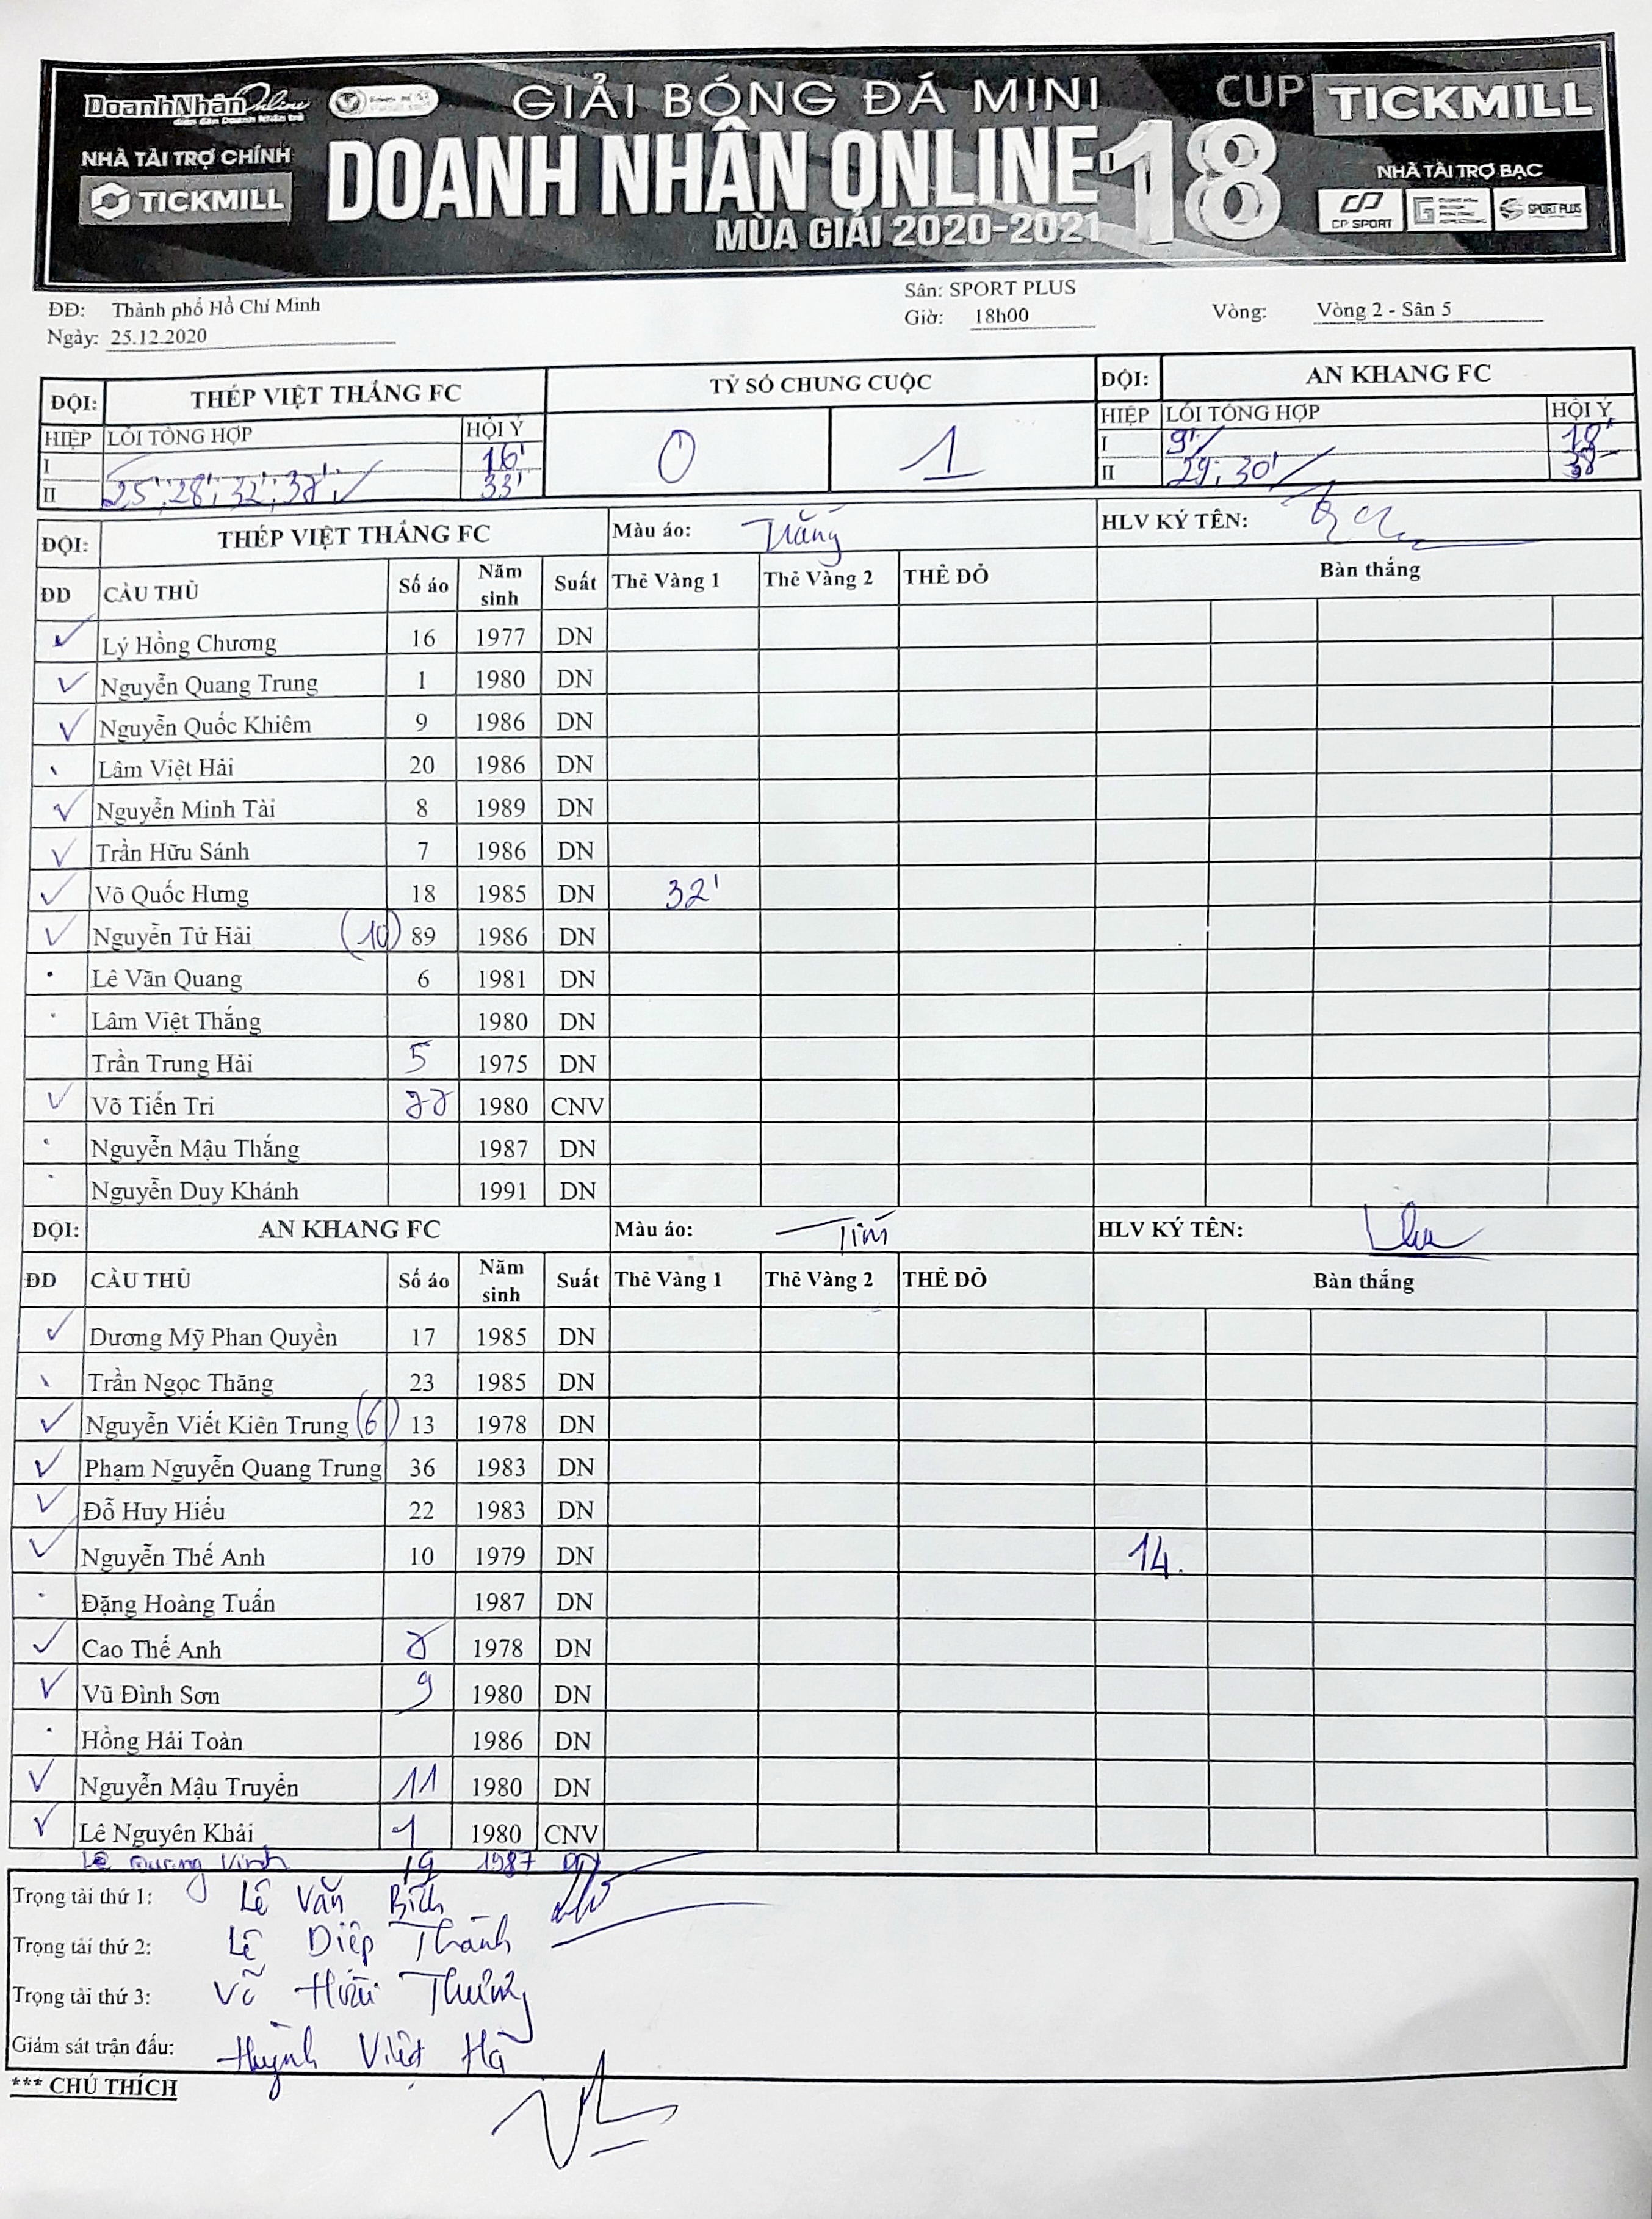 DoanhNhân Online
GIẢI BÓNG ĐÁ MINI
CUP TICKMILL
NHÀ TÀI TRỢ CHÍNH
TICKMILL
DOANH NHÂN ONLINE 18
MÙA GIẢI 2020-2021
NHÀ TÀI TRỢ BẠC
CP SPORT SPORT PLUS
ĐĐ: Thành phố Hồ Chí Minh Sân: SPORT PLUS
Ngày: 25.12.2020 Giờ: 18h00 Vòng: Vòng 2 - Sân 5
ĐỘI: THÉP VIỆT THẮNG FC TỶ SỐ CHUNG CUỘC ĐỘI: AN KHANG FC
HIỆP LỖI TỔNG HỢP HỘI Ý 0 1 HIỆP LỖI TỔNG HỢP HỘI Ý
I 16' I 9' 18'
II 25', 28', 32', 33' II 29', 30'
ĐỘI: THÉP VIỆT THẮNG FC Màu áo: Trắng HLV KÝ TÊN:
ĐD CẦU THỦ Số áo Năm sinh Suất Thẻ Vàng 1 Thẻ Vàng 2 THẺ ĐỎ Bàn thắng
Lý Hồng Chương 16 1977 DN
Nguyễn Quang Trung 1 1980 DN
Nguyễn Quốc Khiêm 9 1986 DN
Lâm Việt Hải 20 1986 DN
Nguyễn Minh Tài 8 1989 DN
Trần Hữu Sánh 7 1986 DN
Võ Quốc Hưng 18 1985 DN 32'
Nguyễn Tử Hải (10) 89 1986 DN
Lê Văn Quang 6 1981 DN
Lâm Việt Thắng 1980 DN
Trần Trung Hải 5 1975 DN
Võ Tiến Tri 1980 CNV
Nguyễn Mậu Thắng 1987 DN
Nguyễn Duy Khánh 1991 DN
ĐỘI: AN KHANG FC Màu áo: Tím HLV KÝ TÊN:
ĐD CẦU THỦ Số áo Năm sinh Suất Thẻ Vàng 1 Thẻ Vàng 2 THẺ ĐỎ Bàn thắng
Dương Mỹ Phan Quyền 17 1985 DN
Trần Ngọc Thăng 23 1985 DN
Nguyễn Viết Kiên Trung (6) 13 1978 DN
Phạm Nguyễn Quang Trung 36 1983 DN
Đỗ Huy Hiếu 22 1983 DN
Nguyễn Thế Anh 10 1979 DN 14.
Đặng Hoàng Tuấn 1987 DN
Cao Thế Anh 8 1978 DN
Vũ Đình Sơn 9 1980 DN
Hồng Hải Toàn 1986 DN
Nguyễn Mậu Truyển 11 1980 DN
Lê Nguyên Khải 1 1980 CNV
Lê Quang Vinh 19 1987 DN
Trọng tài thứ 1: Lê Văn Bích
Trọng tài thứ 2: Lê Diệp Thành
Trọng tài thứ 3: Võ Hữu Thường
Giám sát trận đấu: Huỳnh Việt Hà
*** CHÚ THÍCH